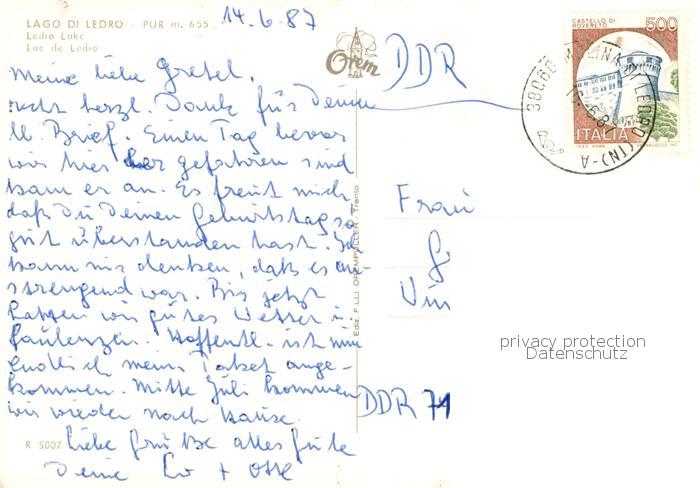 LAGO DI LEDRO - PUR m. 655
Ledro Lake
Lac de Ledro
14.6.87
Meine liebe Gretel,
recht herzl. Dank für Deinen
lb. Brief. Einen Tag bevor
wir hier her gefahren sind
kam er an. Es freut mich
daß Du Deinen Geburtstag so
gut überstanden hast. Ich
kann mir denken, daß es an-
strengend war. Bis jetzt
hatten wir gutes Wetter z.
Faulenzen. Hoffentl. ist nun
endlich mein Paket ange-
kommen. Mitte Juli kommen
wir wieder nach Hause.
Liebe Grüße alles Gute
Deine + Otto
R 5007
Orem
Ediz. F.LLI OREMPULLER - Trento
DDR
CASTELLO DI
ROVERETO
500
ITALIA
38060 MOLINA DI LEDRO (TN) - A
Frau
DDR 71
privacy protection
Datenschutz